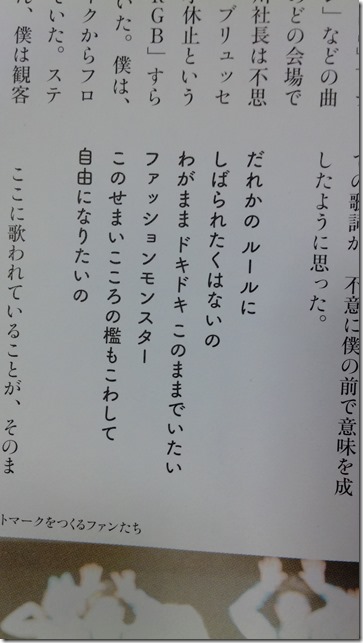 」などの曲
どの会場で
社長は不思
ブリュッセ
休止という
GB」すら
いた。僕は、
クからフロ
ていた。ステ
、僕は観客
の歌詞が、不意に僕の前で意味を成
したように思った。
だれかの ルールに
しばられたくはないの
わがまま ドキドキ このままでいたい
ファッションモンスター
このせまいこころの檻もこわして
自由になりたいの
ここに歌われていることが、そのま
トマークをつくるファンたち